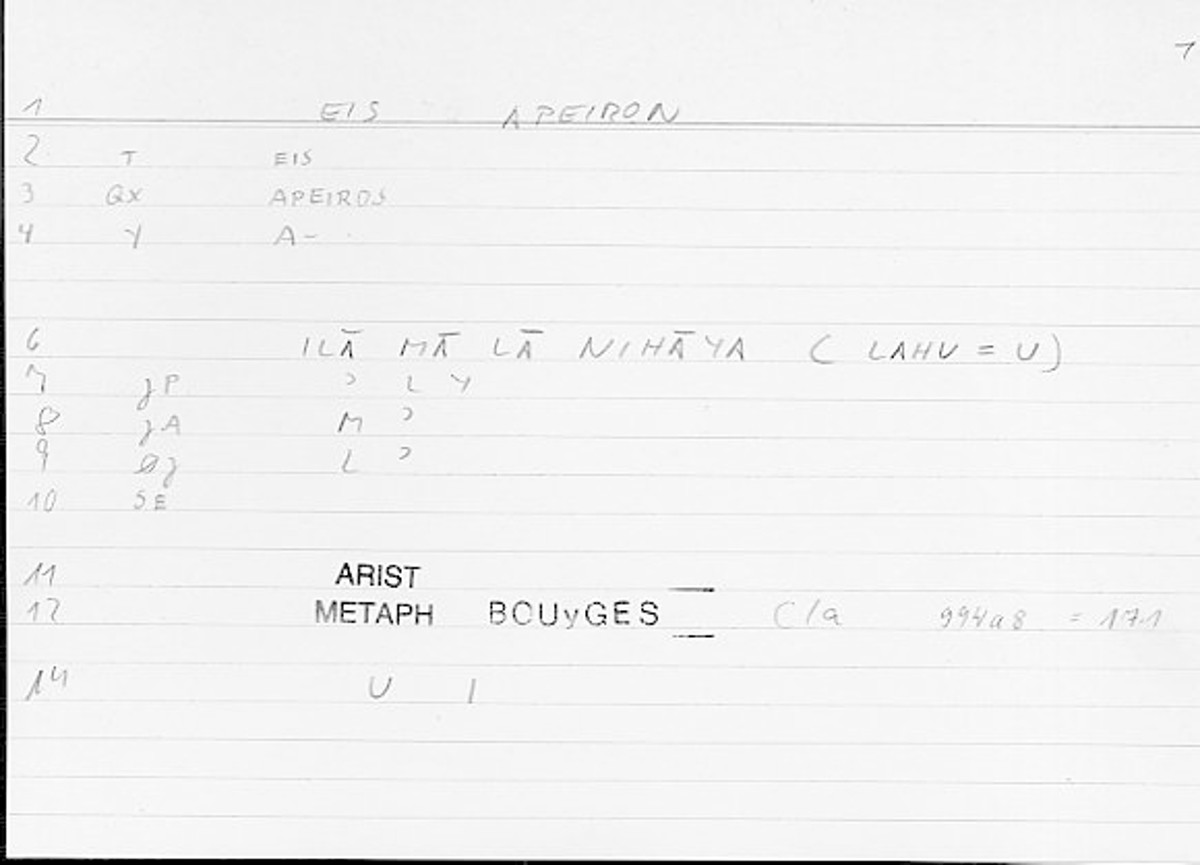 1
1 EIS APEIRON
2 T EIS
3 GX APEIROS
4 Y A-
6 ILĀ MĀ LĀ NIHĀYA ( LAHU = U )
7 ʒP ʾ L Y
8 ʒA M ʾ
9 Øʒ L ʾ
10 SE
11 ARIST
12 METAPH BOUyGES C/a 994a8 = 171
14 U I